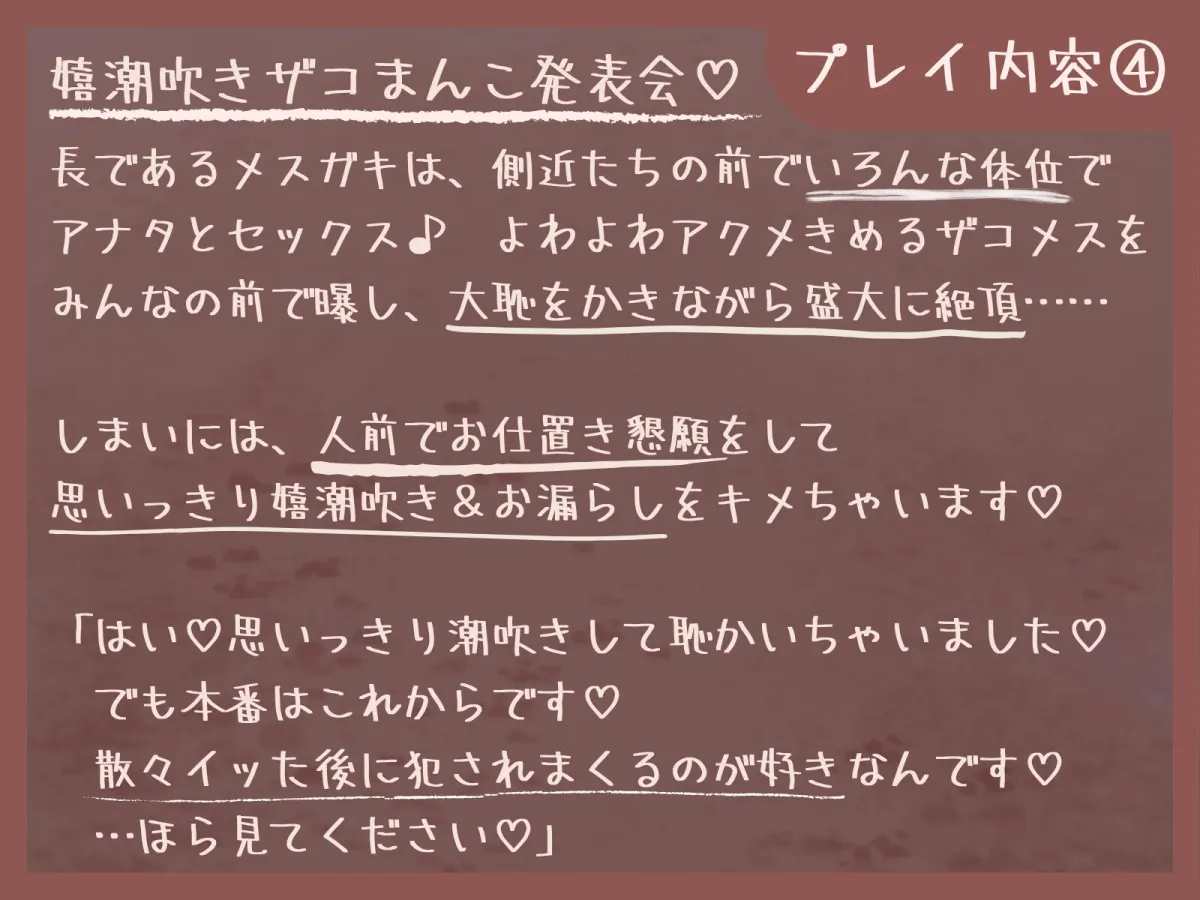 プレイ内容④
嬉潮吹きザコまんこ発表会♡
長であるメスガキは、側近たちの前でいろんな体位で
アナタとセックス♪ よわよわアクメきめるザコメスを
みんなの前で曝し、大恥をかきながら盛大に絶頂……
しまいには、人前でお仕置き懇願をして
思いっきり嬉潮吹き＆お漏らしをキメちゃいます♡
「はい♡思いっきり潮吹きして恥かいちゃいました♡
でも本番はこれからです♡
散々イッた後に犯されまくるのが好きなんです♡
…ほら見てください♡」